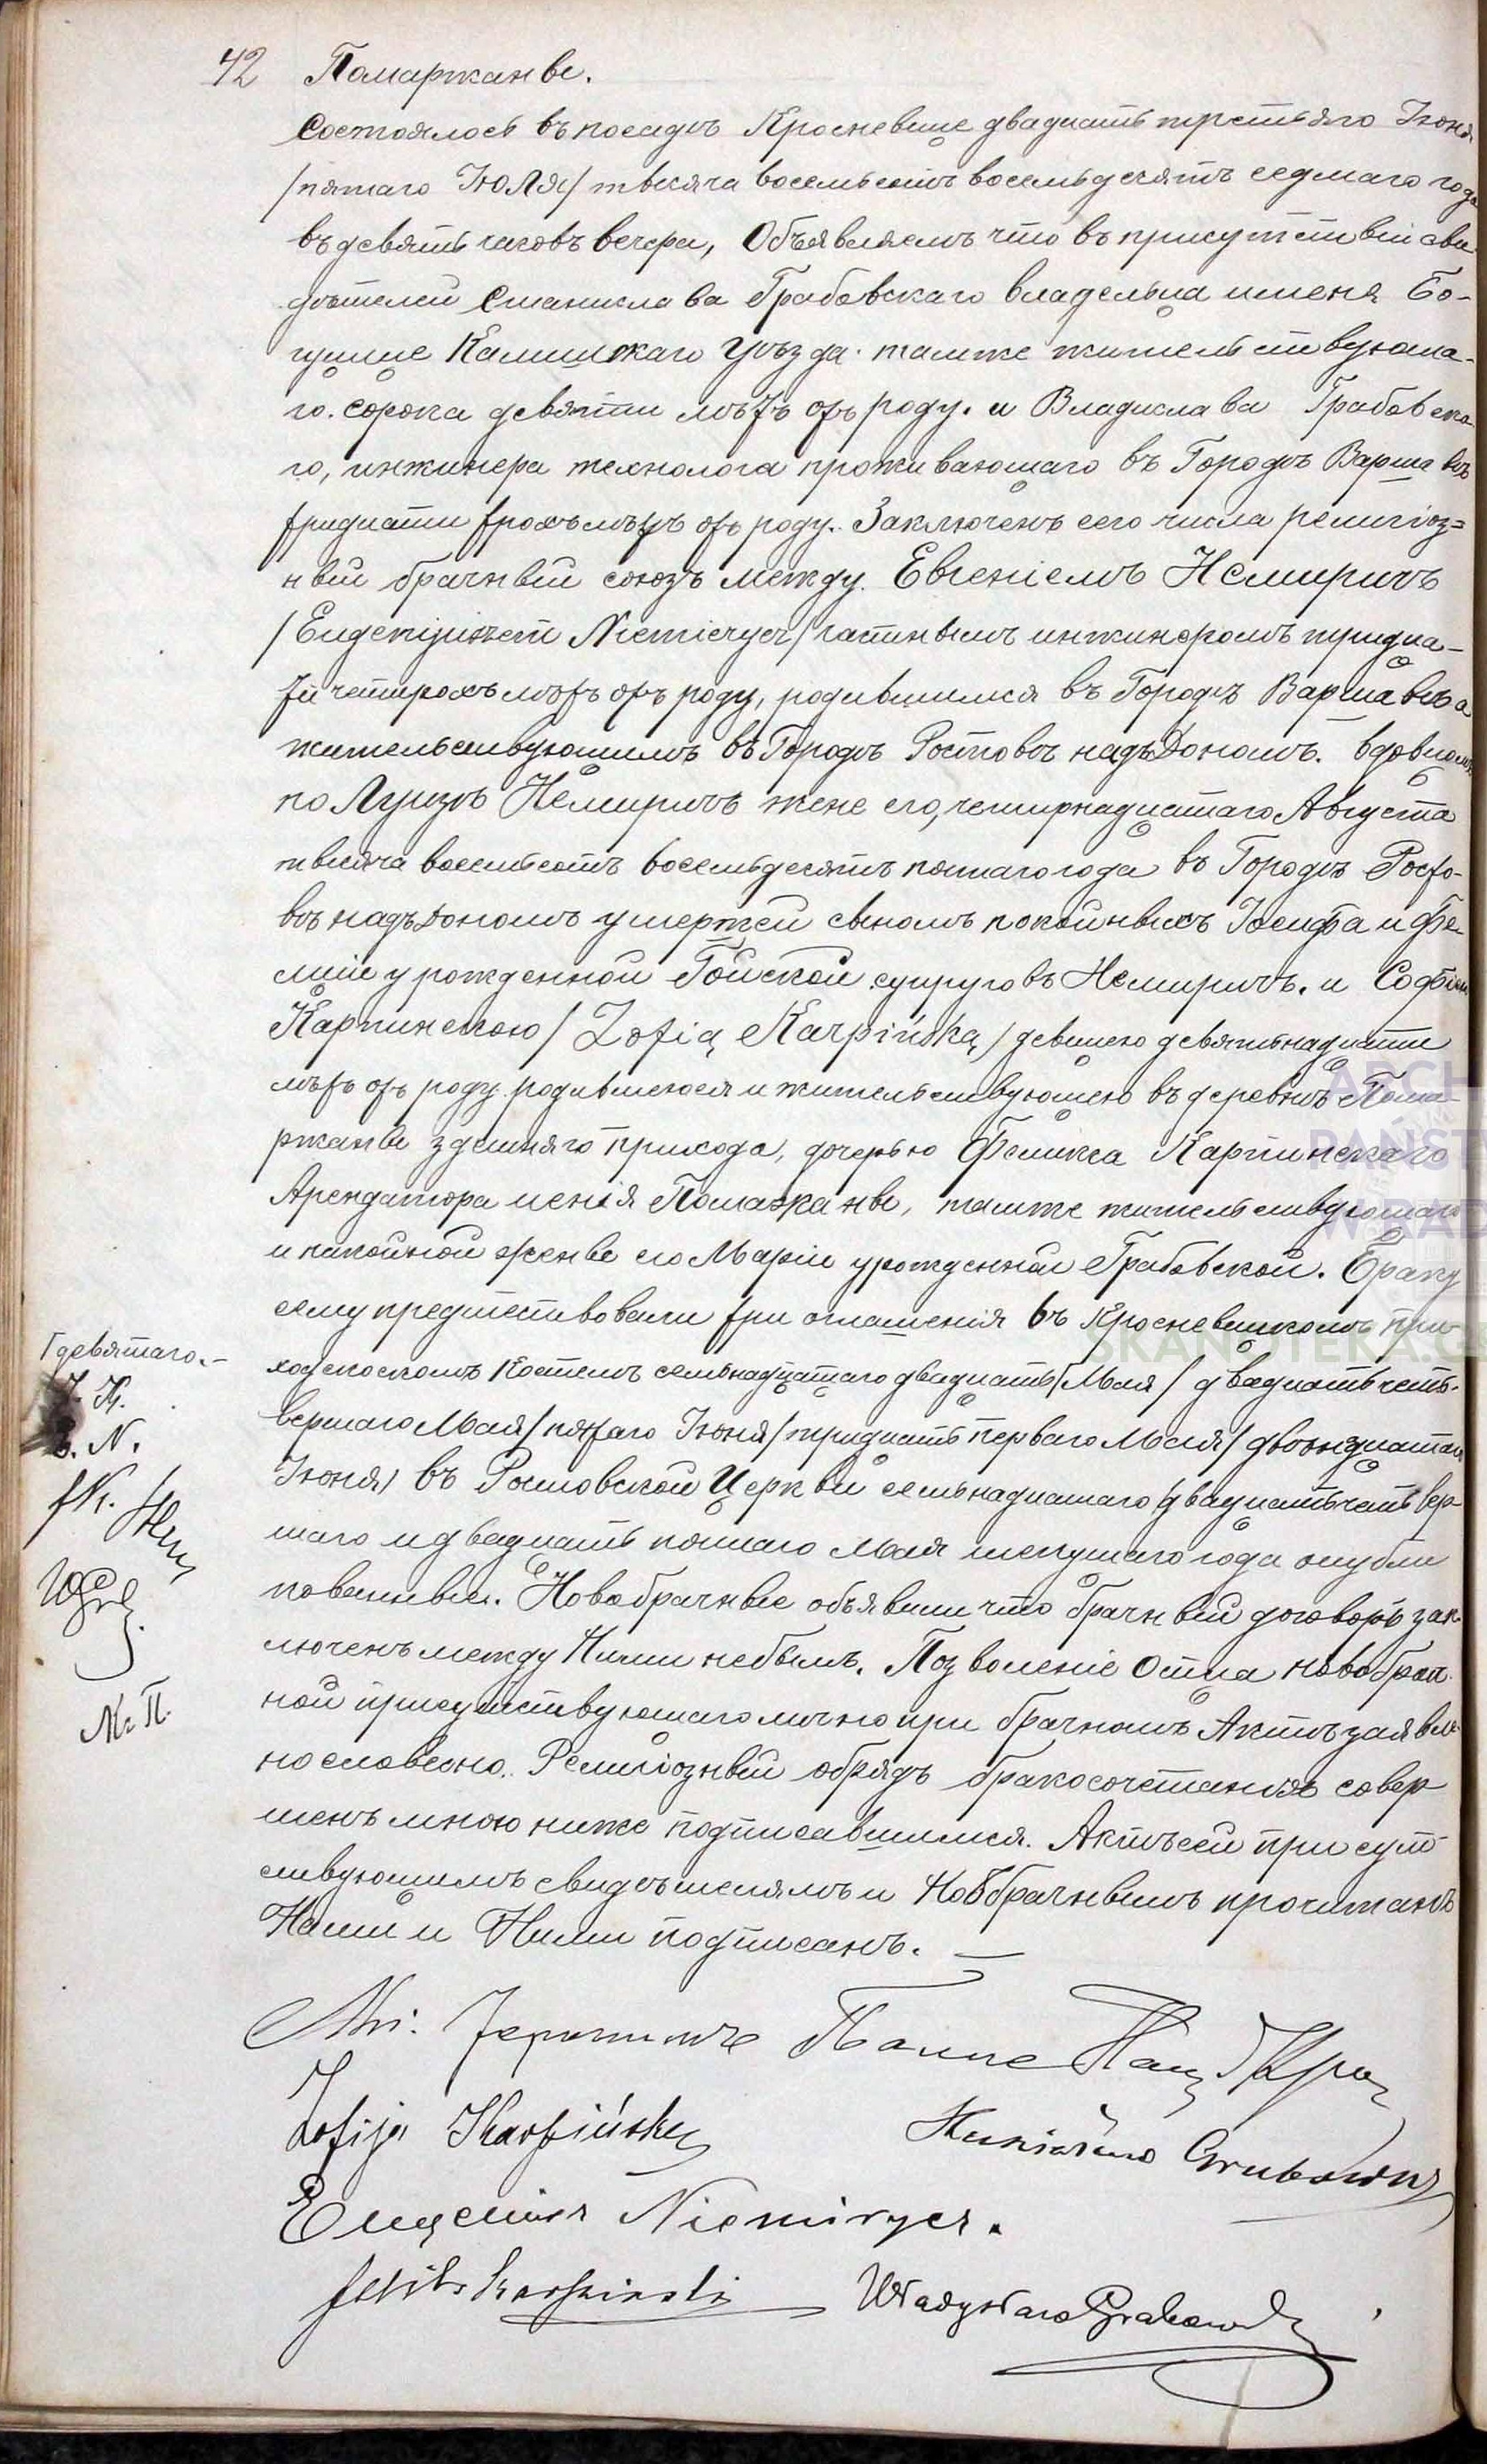 42 Помаржанве.
Состоялось въ посадѣ Кросневице двадцать третьяго Іюня
/пятаго Іюля/ тысяча восемьсотъ восемьдесятъ седмаго года
въ девять часовъ вечера, Объявляемъ что въ присутствіи сви
дѣтелей Станислава Грабовскаго владельца именя Бо-
гушице Калишкаго Уѣзда тамже жительствующа-
го. сорока девяти лѣтъ отъ роду. и Владислава Грабовска
го, инжинера технолога проживающаго въ Городѣ Варшавѣ
тридцати трохъ лѣтъ отъ роду. Заключенъ сего числа религіоз=
ный брачный союзъ между Евгеніемъ Немиричъ
/Eugenijuszem Niemierycz/ частнымъ инжинеромъ тридца-
ти четирохъ лѣтъ отъ роду, родившимся въ Городѣ Варшавѣ а
жительствующимъ въ Городѣ Ростовѣ надъ Дономъ. вдовцомъ
по Луизѣ Немиричъ жене его, четирнадцатаго Августа
тысяча восемьсотъ восемьдесятъ пятаго года въ Городѣ Росто-
вѣ надъ Дономъ умержей сыномъ покойныхъ Іосифа и Фе-
лиціи урожденной Гойской супруговъ Немиричъ. и Софіею
Карпинскою / Zofią Karpińską / девицею девятьнадцати
лѣтъ отъ роду родившеюся и жительствующею въ деревнѣ Пома-
ржанве здешняго прихода, дочерью Феликса Карпинскаго
Арендатора иенія Помаржанве, тамже жительствующаго
и покойной женве его Маріи урожденной Грабовской. Браку
сему предшествовали три оглашенія въ Кросневицкомъ при-
ходскоскомъ Костелѣ семьнадцатаго двадцать /Мая/ двадцать чет-
вертаго Мая /пятаго Іюня/ тридцать перваго Мая / двѣнадцатаго
Іюня/ въ Ростовской Церкви семьнадцатаго двадцать четвер-
таго и двадцать пятаго Мая текущаго года опубли
кованные. Новобрачные объявили что брачный договоръ зак
люченъ между Ними небылъ. Позволеніе Отца новобрач-
ной присутствующаго лично при брачномъ Актѣ заявле
но словесно. Религіозный обрядъ бракосочетанія совер
шенъ мною ниже подписавшимся. Актъ сей присут
ствующимъ свидѣтелямъ и Новобрачнымъ прочитанъ
Нами и Ними подписанъ. —
/девятаго.-
E. N.
М. П.
Zofija Karpińska
Stanisław Grabowski
Eugeniusz Niemirycz.
Feliks Karpinski Władysław Grabowski
SKANOTEKA